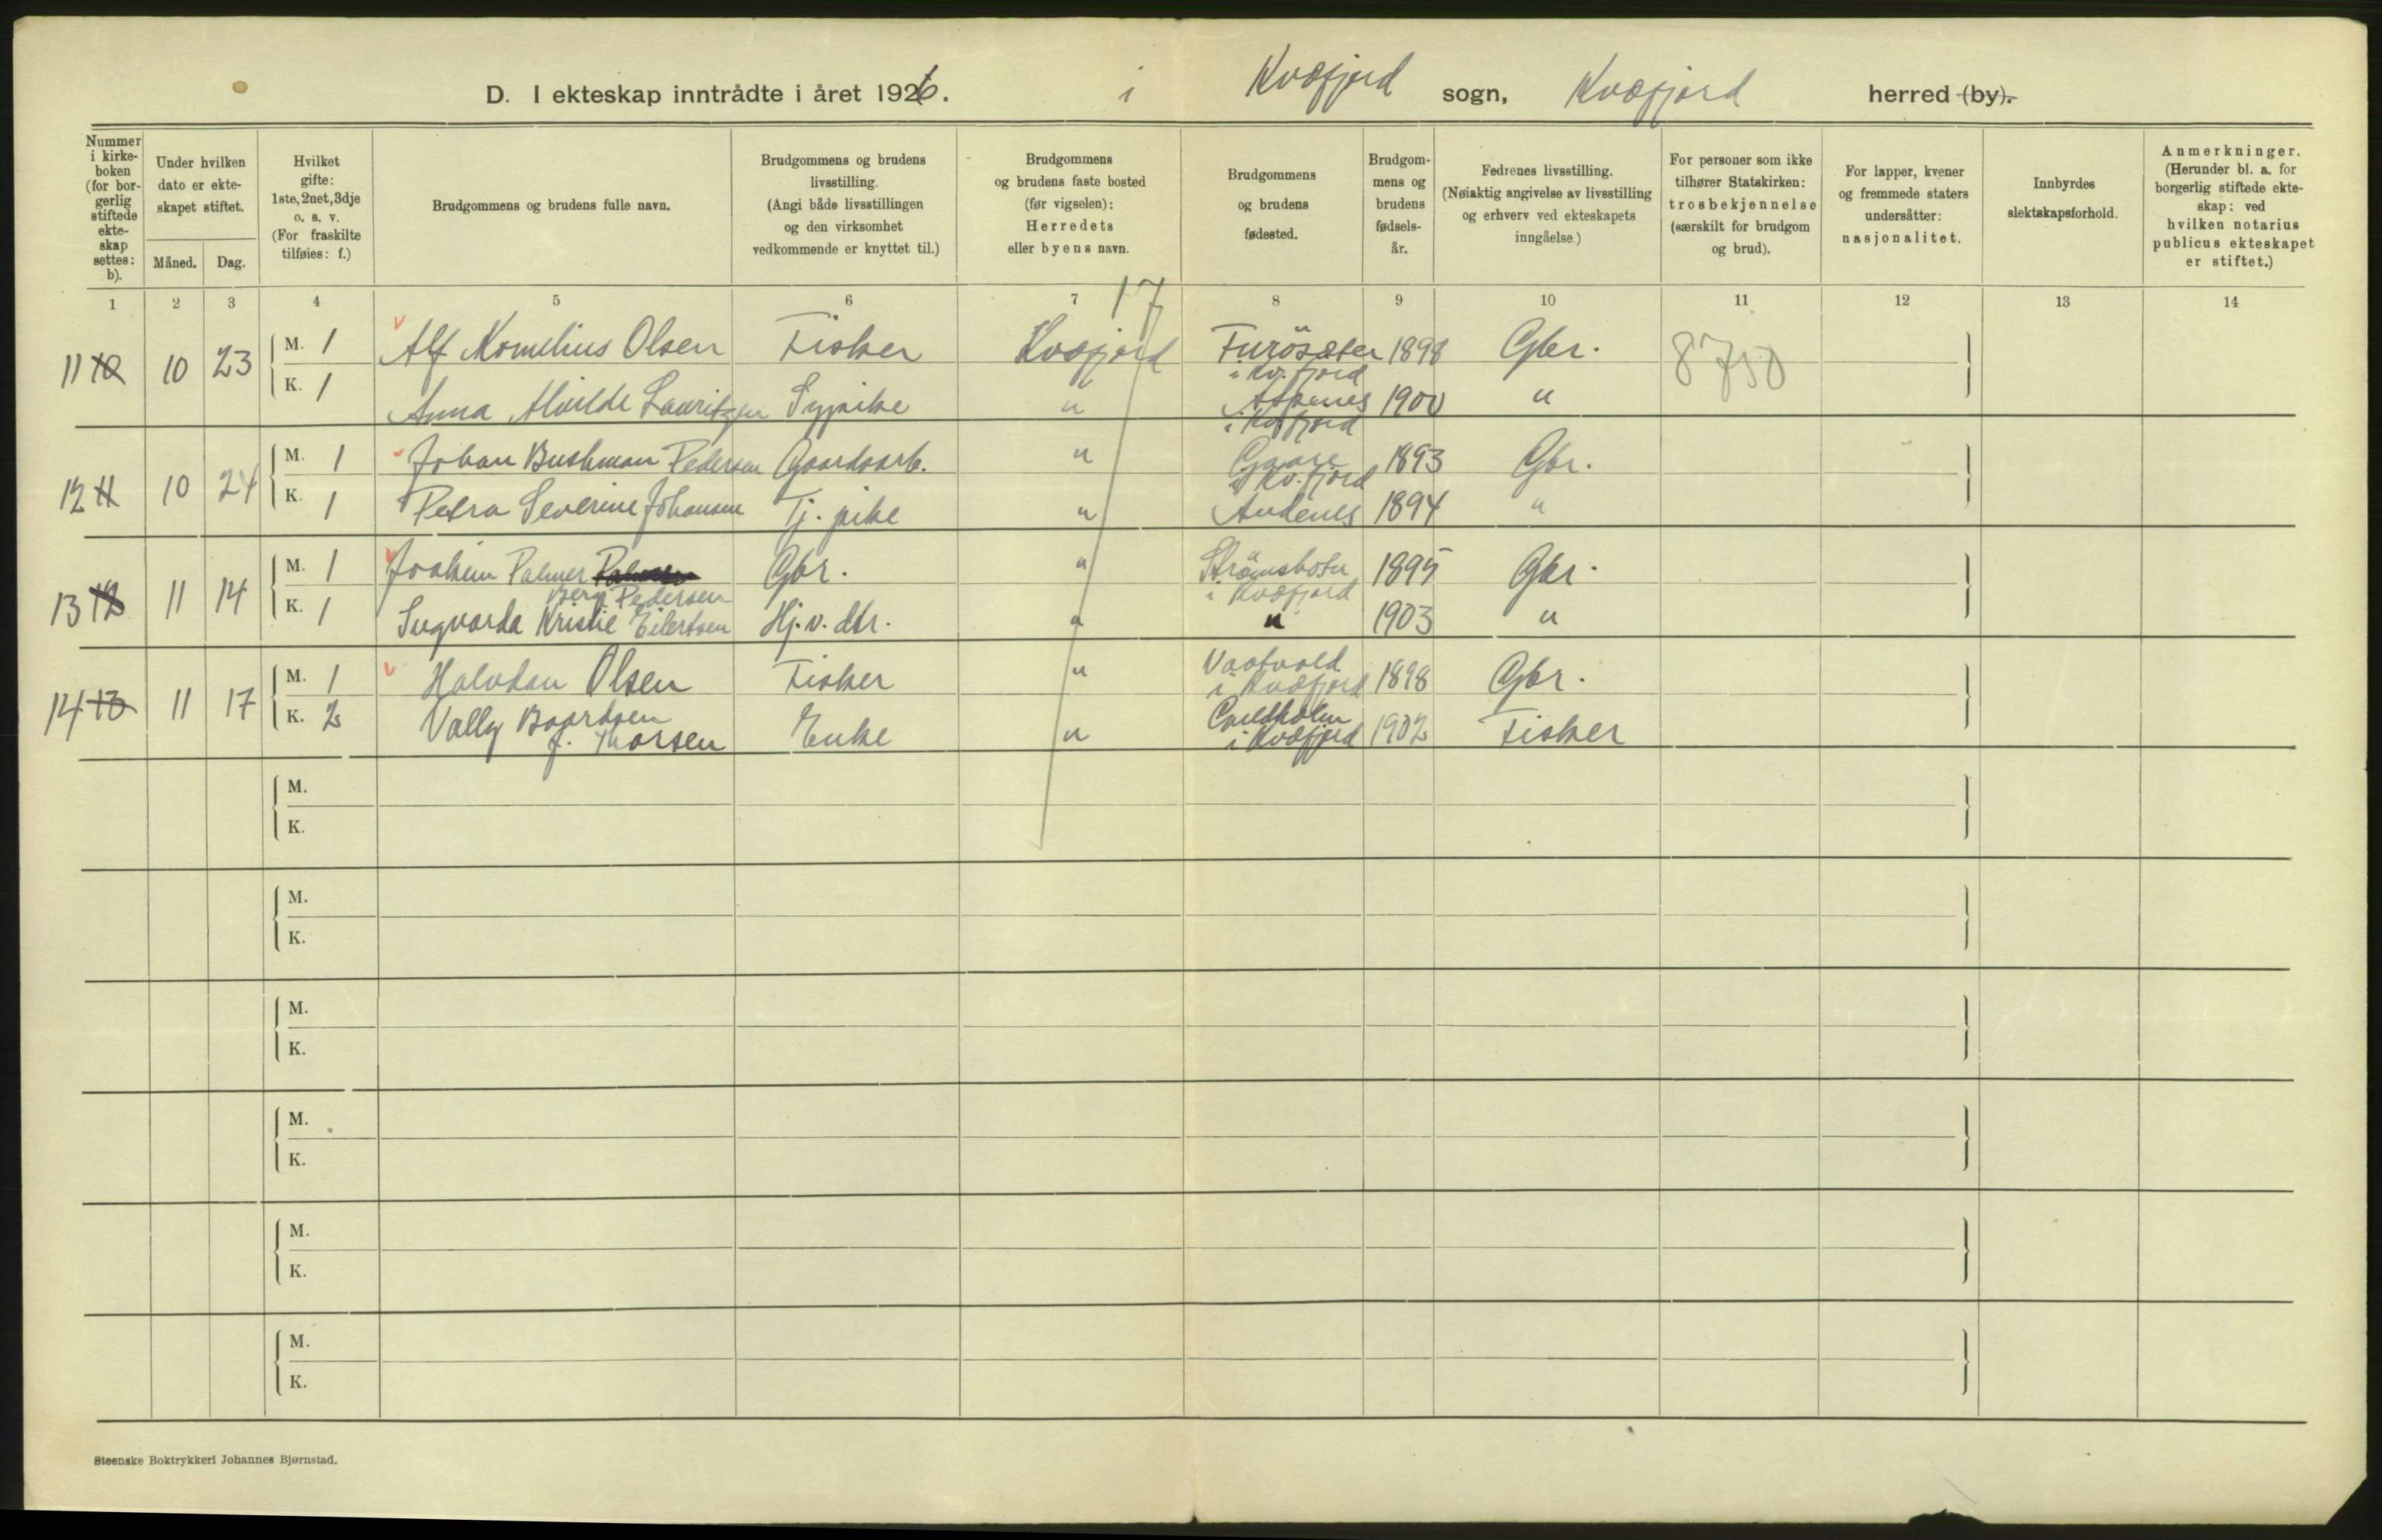 D. I ekteskap inntrådte i året 1926. i Kvæfjord sogn, Kvæfjord herred (by).
Nummer i kirkeboken (for borgerlig stiftede ekteskap settes: b).
Under hvilken dato er ekteskapet stiftet.
Måned. Dag.
Hvilket gifte: 1ste, 2net, 3dje o. s. v. (For fraskilte tilføies: f.)
Brudgommens og brudens fulle navn.
Brudgommens og brudens livsstilling. (Angi både livsstillingen og den virksomhet vedkommende er knyttet til.)
Brudgommens og brudens faste bosted (før vigselen): Herredets eller byens navn.
Brudgommens og brudens fødested.
Brudgommens og brudens fødselsår.
Fedrenes livsstilling. (Nøiaktig angivelse av livsstilling og erhverv ved ekteskapets inngåelse.)
For personer som ikke tilhører Statskirken: trosbekjennelse (særskilt for brudgom og brud).
For lapper, kvener og fremmede staters undersåtter: nasjonalitet.
Innbyrdes slektskapsforhold.
Anmerkninger. (Herunder bl. a. for borgerlig stiftede ekteskap: ved hvilken notarius publicus ekteskapet er stiftet.)
1 2 3 4 5 6 7 8 9 10 11 12 13 14
17
11 10 10 23 M. 1 Alf Kornelius Olsen Fisker Kvæfjord Furøsæter i Kv.fjord 1898 Gbr. 8750
K. 1 Anna Alvilde Lauritzen Sypike " i Kvfjord 1900 "
12 11 10 24 M. 1 Johan Bushman Pedersen Gaardsarb. " Gaare i Kv.fjord 1893 Gbr.
K. 1 Petra Severine Johansen Tj. pike " Andenes 1894 "
13 12 11 14 M. 1 Joakim Palmer Berg Pedersen Gbr. " Strømsbotn i Kvæfjord 1895 Gbr.
K. 1 Sugvarda Kristie Eilertsen Hj.v. dtr. " " 1903 "
14 13 11 17 M. 1 Halvdan Olsen Fisker " i Kvæfjord 1898 Gbr.
K. 2 Vally Baardsen f. Thorsen Enke " i Kvæfjord 1902 Fisker
M.
K.
M.
K.
M.
K.
M.
K.
M.
K.
M.
K.
Steenske Boktrykkeri Johannes Bjørnstad.